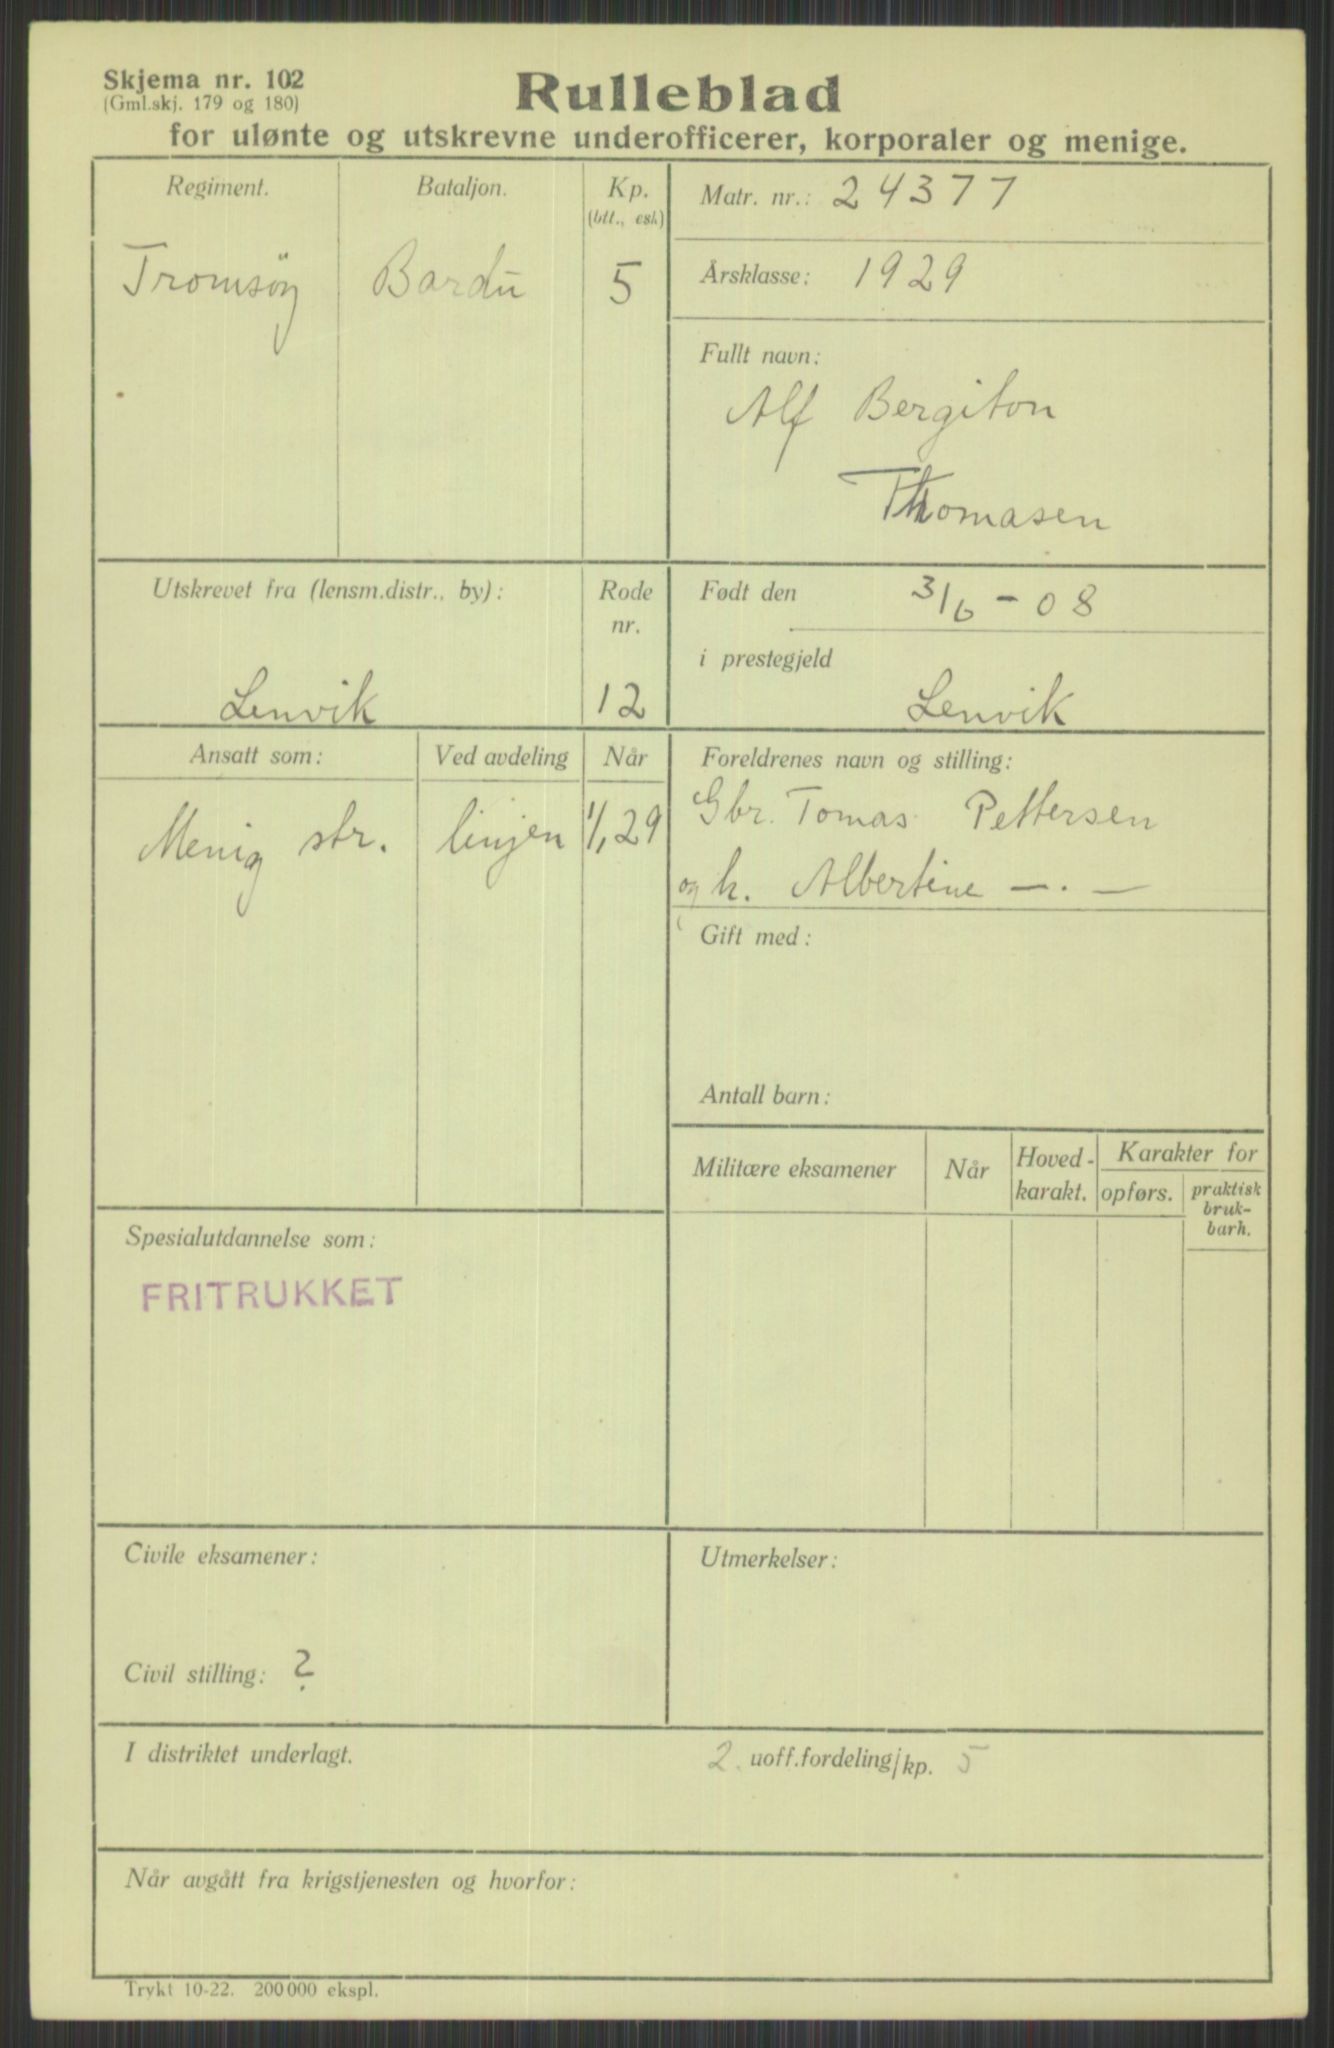 Skjema nr. 102
(Gml.skj. 179 og 180)
Rulleblad
for ulønte og utskrevne underofficerer, korporaler og menige.
Regiment.
Bataljon.
Kp.
(btt., esk)
Tromsöy
Bardu
5
Matr. nr.: 24377
Årsklasse: 1929
Fullt navn:
Alf Bergiton
Thomasen
Utskrevet fra (lensm.distr., by):
Lenvik
Rode
nr.
12
Født den 3/6 - 08
i prestegjeld
Lenvik
Ansatt som:
Ved avdeling
Når
Menig str.
linjen
1/1 29
Foreldrenes navn og stilling:
Gbr. Tomas Pettersen
og h. Albertine — . —
Gift med:
Antall barn:
Militære eksamener
Når
Hoved-
karakt.
Karakter for
opførs.
praktisk
bruk-
barh.
Spesialutdannelse som:
FRITRUKKET
Civile eksamener:
Civil stilling: ?
Utmerkelser:
I distriktet underlagt.
2. uoff.fordeling/kp. 5
Når avgått fra krigstjenesten og hvorfor:
Trykt 10-22. 200 000 ekspl.